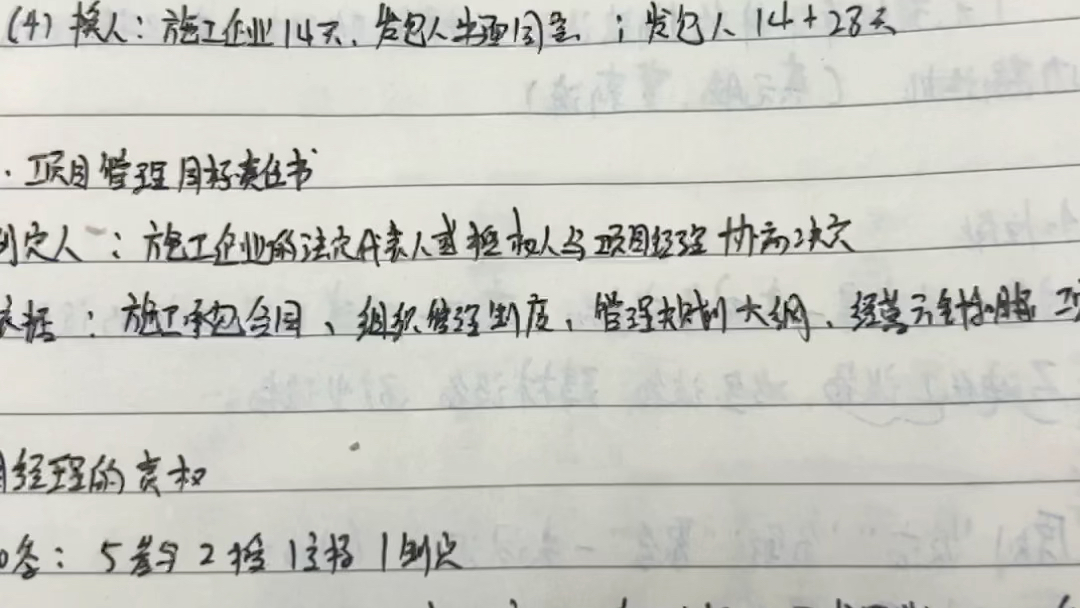 (4) 换人：施工企业14天，发包人书面同意；发包人 14+28天
·项目管理目标责任书
制定人：施工企业的法定代表人或授权人与项目经理协商决定
依据：施工承包合同、组织管理制度、管理规划大纲、经营方针和目标
经理的责权
条：5参与 2授 1主持 1制定